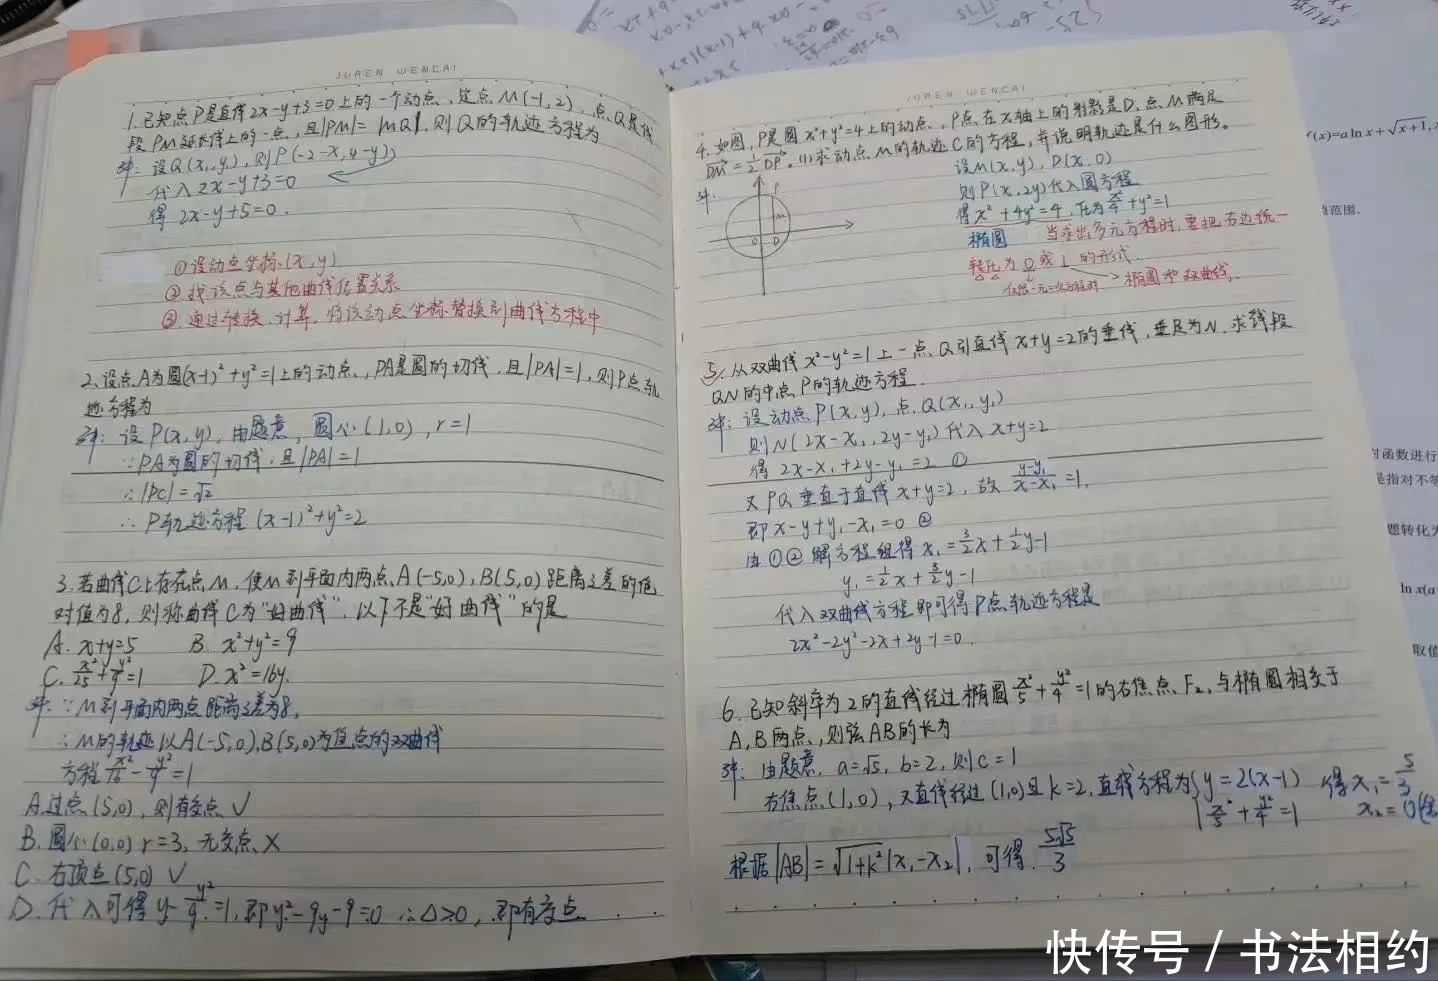 JUREN WENCAI
1.已知点P是直线2x-y+3=0上的一个动点,定点M(-1,2),点Q是线
段PM延长线上的一点,且|PM|=|MQ|,则Q的轨迹方程为
解:设Q(x,y),则P(-2-x,4-y),
代入2x-y+3=0
得2x-y+5=0.
①设动点坐标(x,y)
②找该点与其他曲线位置关系
③.通过转换、计算,将该动点坐标替换到曲线方程中
2.设点A为圆(x-1)²+y²=1上的动点,PA是圆的切线,且|PA|=1,则P点轨
迹方程为
解:设P(x,y),由题意,圆心(1,0),r=1
∵PA为圆的切线,且|PA|=1
∴|PC|=√2
∴P轨迹方程(x-1)²+y²=2
3.若曲线C上存在点M,使M到平面内两点A(-5,0),B(5,0)距离之差的绝
对值为8,则称曲线C为“好曲线”,以下不是“好曲线”的是
A. x+y=5 B. x²+y²=9
C. x²/25+y²/9=1 D. x²=16y.
解:∵M到平面内两点距离之差为8,
∴M的轨迹以A(-5,0),B(5,0)为焦点的双曲线
方程x²/16-y²/9=1
A.过点(5,0),则有交点✓
B.圆心(0,0) r=3,无交点×
C.右顶点(5,0)✓
D.代入可得y-y²/9=1,即y²-9y-9=0 ∴Δ>0,即有交点
JUREN WENCAI
4.如图,P是圆x²+y²=4上的动点,P点在x轴上的射影是D,点M满足
DM=1/2DP。(1)求动点M的轨迹C的方程,并说明轨迹是什么图形。
解:
设M(x,y),D(x,0)
则P(x,2y)代入圆方程
得x²+4y²=4,化为x²/4+y²=1
椭圆 当求出多元方程时,要把右边统一
转化为0或1的形式
→椭圆和双曲线.
P
M
O D
5.从双曲线x²-y²=1上一点Q引直线x+y=2的垂线,垂足为N,求线段
QN的中点P的轨迹方程.
解:设动点P(x,y),点Q(x₁,y₁)
则N(2x-x₁,2y-y₁)代入x+y=2
得2x-x₁+2y-y₁=2 ①
又PQ垂直于直线x+y=2,故(y-y₁)/(x-x₁)=1,
即x-y+y₁-x₁=0 ②
由①②解方程组得x₁=3/2x+1/2y-1
y₁=1/2x+3/2y-1
代入双曲线方程即可得P点轨迹方程是
2x²-2y²-2x+2y-1=0.
6.已知斜率为2的直线经过椭圆x²/5+y²/4=1的右焦点F₂,与椭圆相交于
A,B两点,则弦AB的长为
解:由题意,a=√5,b=2,则c=1
右焦点(1,0),又直线经过(1,0)且k=2,直线方程为{y=2(x-1) 得x₁=5/3
x²/5+y²/4=1 x₂=0
根据|AB|=√1+k²|x₁-x₂|,可得5√5/3
f(x)=a ln x+√x+1,x
值范围.
对函数进行
是指对不等
题转化为
ln x(a
取值
快传号/书法相约